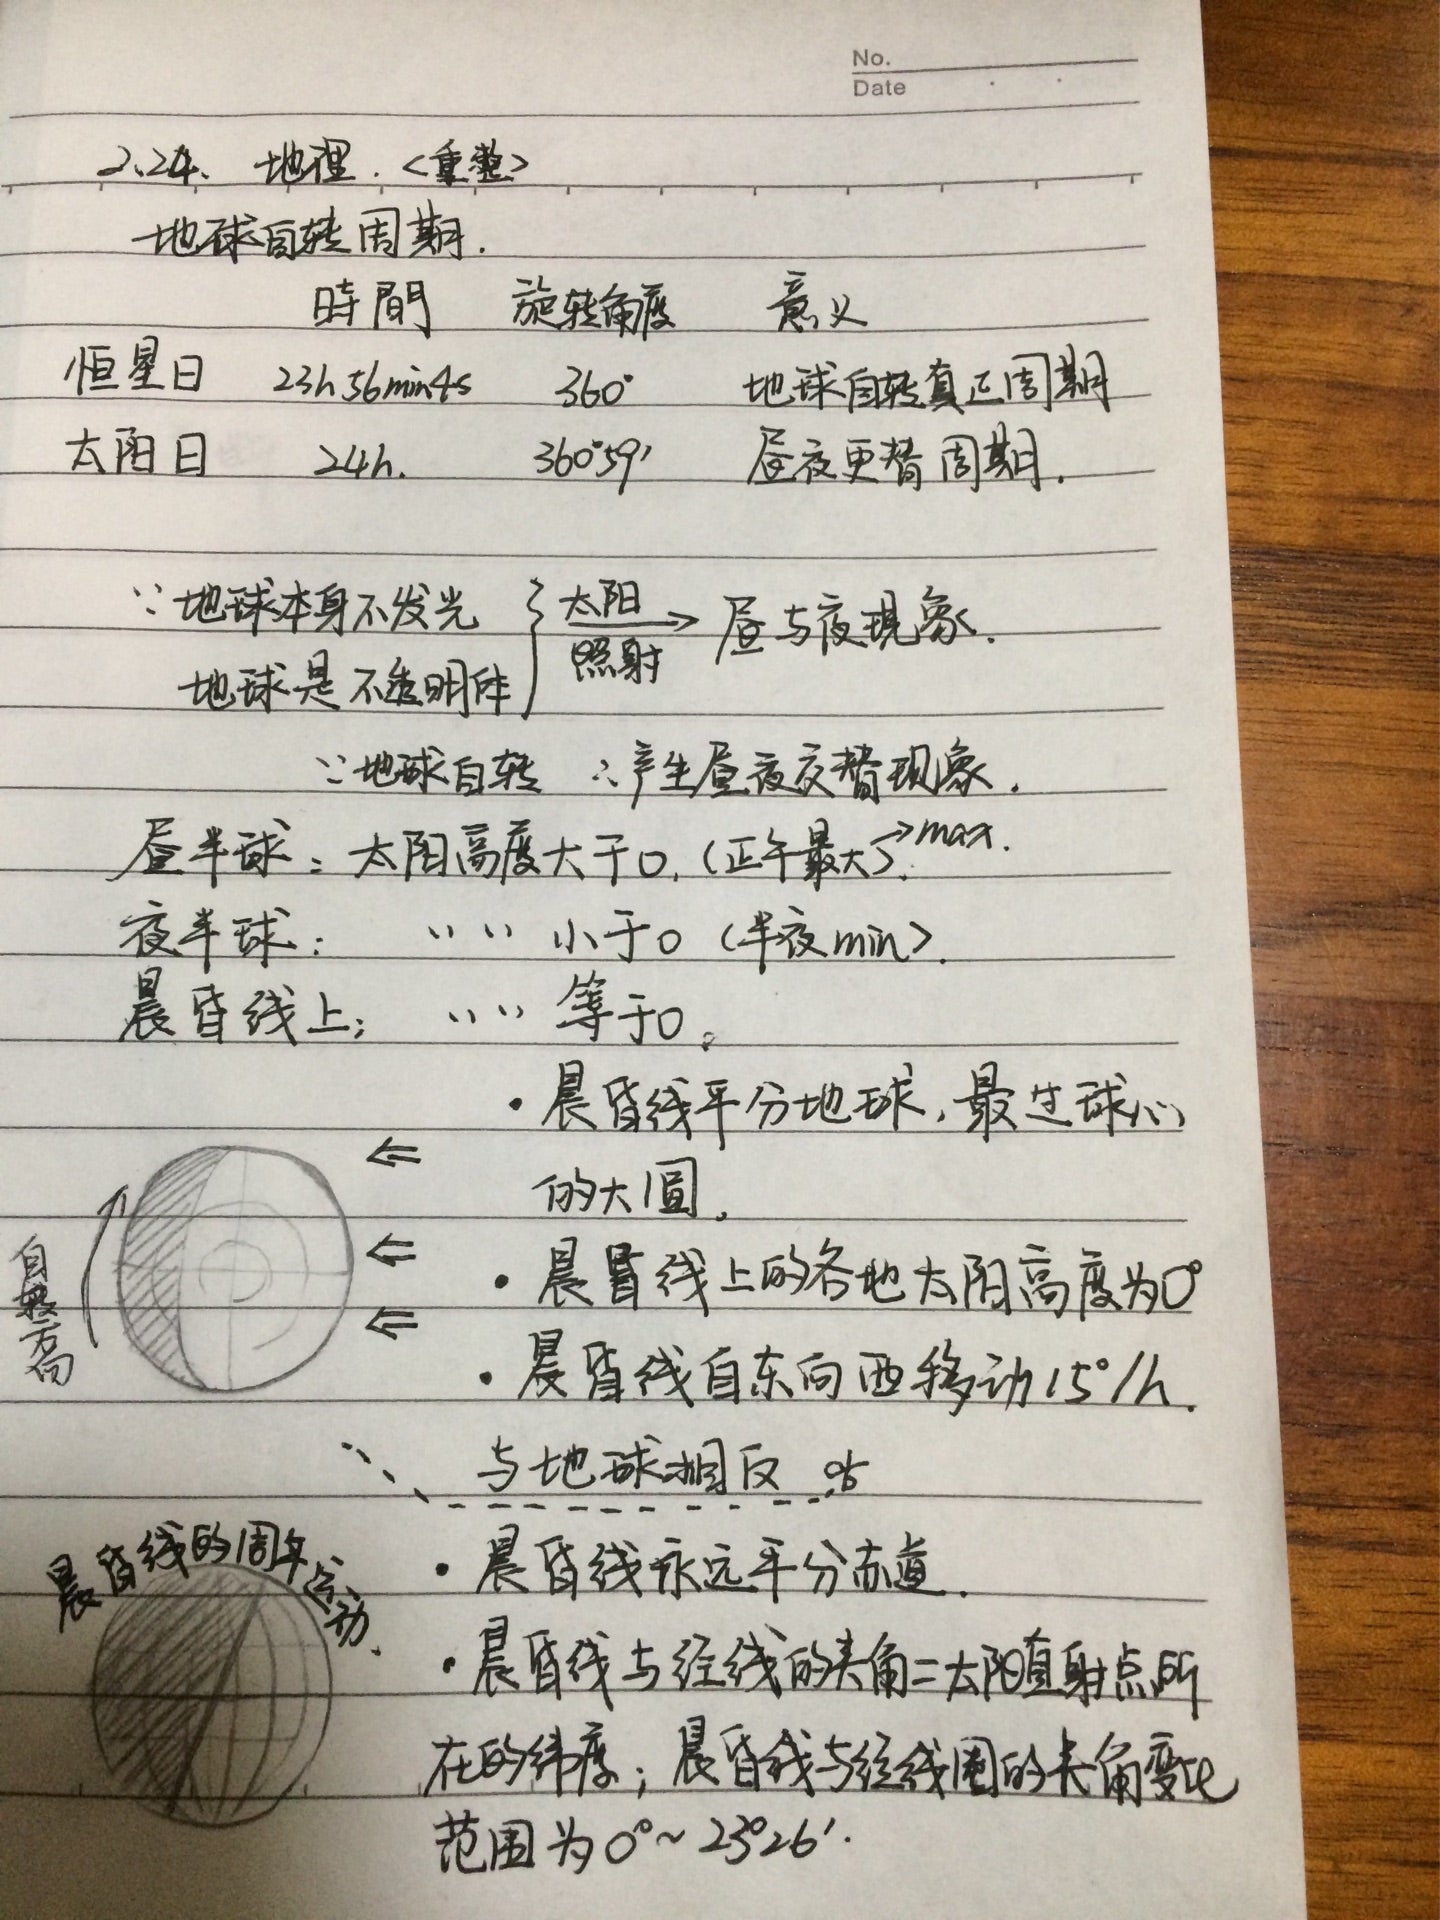 No.
Date
2.24. 地理.<重整>
地球自转周期.
時間 旋转角度 意义
恒星日 23h56min4s 360° 地球自转真正周期
太阳日 24h. 360°59′ 昼夜更替周期.
∵地球本身不发光
地球是不透明体
} 太阳
照射
→ 昼与夜現象.
∵地球自转 ∴产生昼夜交替现象.
昼半球: 太阳高度大于0.(正午最大)→max.
夜半球: 〃 〃 小于0 (半夜min).
晨昏线上; 〃 〃 等于0。
·晨昏线平分地球,最过球心
的大圆.
·晨昏线上的各地太阳高度为0°
·晨昏线自东向西移动15°/h.
与地球相反
自转方向
·晨昏线永远平分赤道.
晨昏线的周年运动.
·晨昏线与经线的夹角=太阳直射点所
在的纬度;晨昏线与经线圈的夹角变化
范围为0°~23°26′.